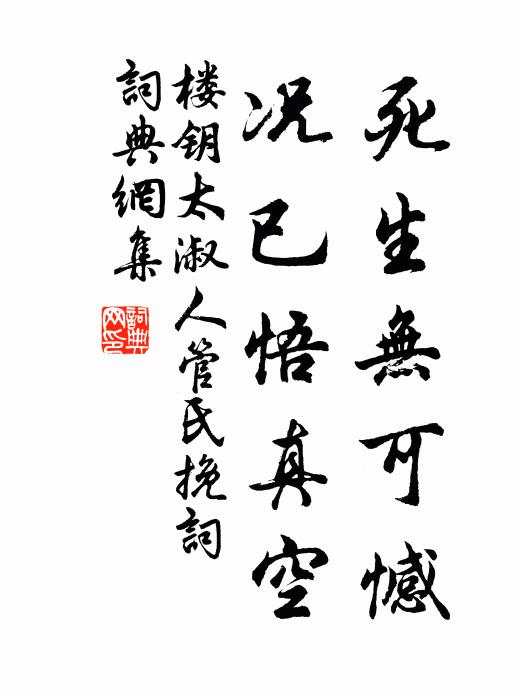 死生無可憾
况已悟真空
楼钥太淑人管氏挽詞
詞典網集
詞典网印